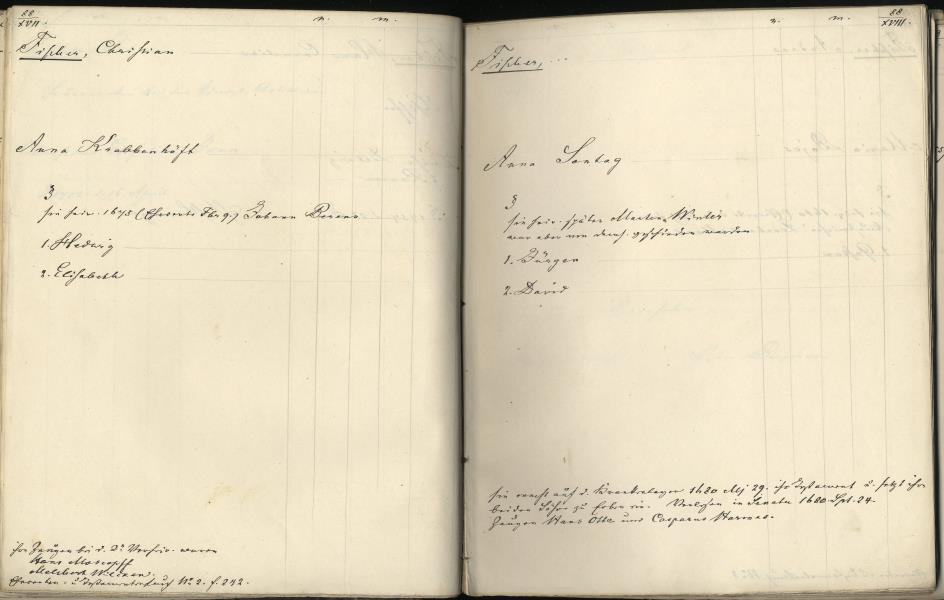 88
XVII.
n. m.
Fischer, Christian
Anna Krabbenhöft
§
sie heir. 1675 (Eheverts Fbr 9.) Johann Berens
1. Hedwig
2. Elisabeth
ihre Zeugen bei d. 2ⁿ waren
Hans
Melchert
u. Testamentenbuch No 2. f. 242.
88
XVIII.
n. m.
Fischer, ...
Anna Sontag
§
sie heir. später Marten Winter
war aber von dems. geschieden worden
1. Jürgen
2. David
sie macht auf d. Krankenlager 1680 Mj 29. ihr Testament u. setzt ihre
beiden Söhne zu Erben ein. Verlesen in Senatu 1680 Spt. 24.
Zeugen Hans Otte und Casparus Harmes.